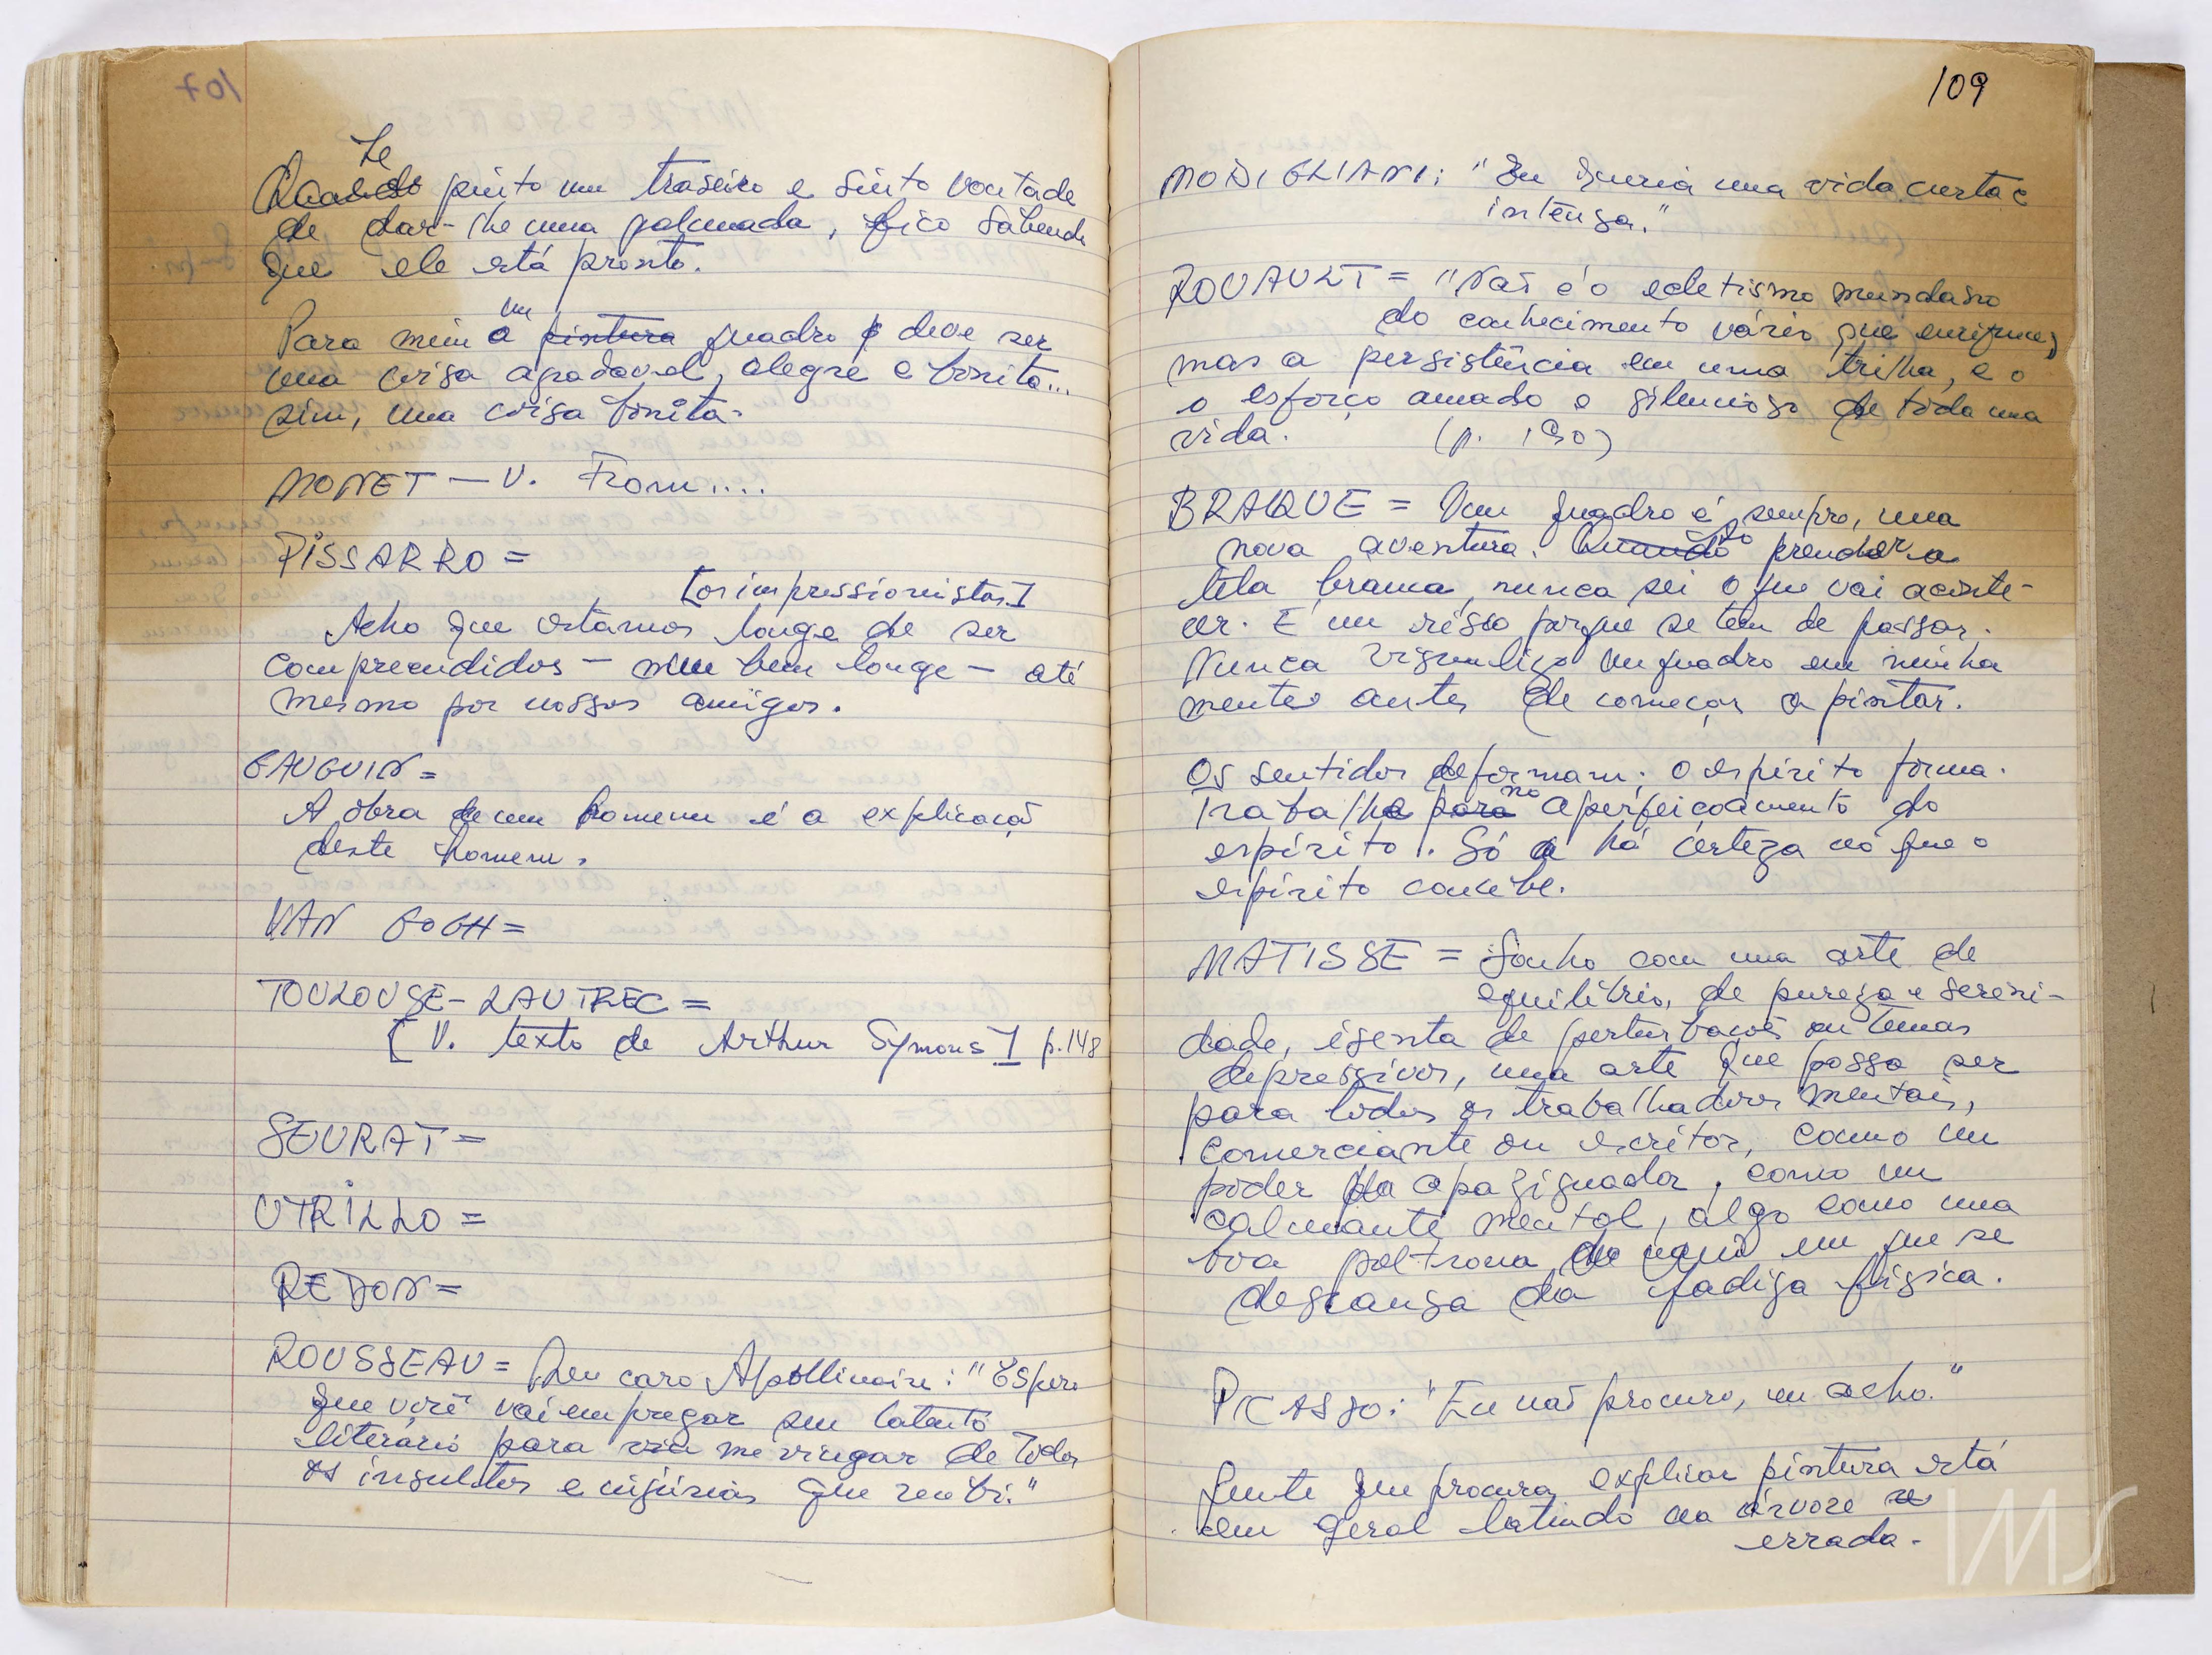 107
Se
Quando pinto um traseiro e sinto vontade
de dar-lhe uma palmada, fico sabendo
que ele está pronto.
um
Para mim a pintura quadro deve ser
uma coisa agradavel, alegre e bonita...
sim, uma coisa bonita.
MONET — V. From....
PISSARRO =
[os impressionistas]
Acho que estamos longe de ser
compreendidos — bem longe — até
mesmo por nossos amigos.
GAUGUIN =
A obra de um homem é a explicação
deste homem.
VAN GOGH =
TOULOUSE-LAUTREC =
[V. texto de Arthur Symons] p.148
SEURAT =
UTRILLO =
REDON =
ROUSSEAU = Meu caro Apollinaire: "Espero
que você vai empregar seu talento
literário para me vingar de todos
os insultos e injúrias que recebi."
109
MODIGLIANI: "Eu queria uma vida curta e
intensa."
ROUAULT = "Não é o ecletismo mundano
do conhecimento vário que enriquece,
mas a persistência em uma trilha, e o
o esforço amado e silencioso de toda uma
vida. (p. 190)
BRAQUE = Um quadro é, sempre, uma
nova aventura. Quando Ao prender a
tela branca, nunca sei o que vai aconte-
cer. É um risco porque se tem de passar.
Nunca visualizo um quadro em minha
mente antes de começar a pintar.
Os sentidos deformam; o espírito forma.
Trabalhe para no aperfeiçoamento do
espírito. Só há certeza no que o
espírito concebe.
MATISSE = Sonho com uma arte de
equilíbrio, de pureza e sereni-
dade, isenta de perturbações ou temas
depressivos, uma arte que possa ser
para todos os trabalhadores mentais,
comerciante ou escritor, como um
poder apaziguador, como um
calmante mental, algo como uma
boa poltrona em que se
descansa da fadiga física.
PICASSO: "Eu não procuro, eu acho."
Gente que procura explicar pintura está
em geral latindo na árvore
errada.
IMS